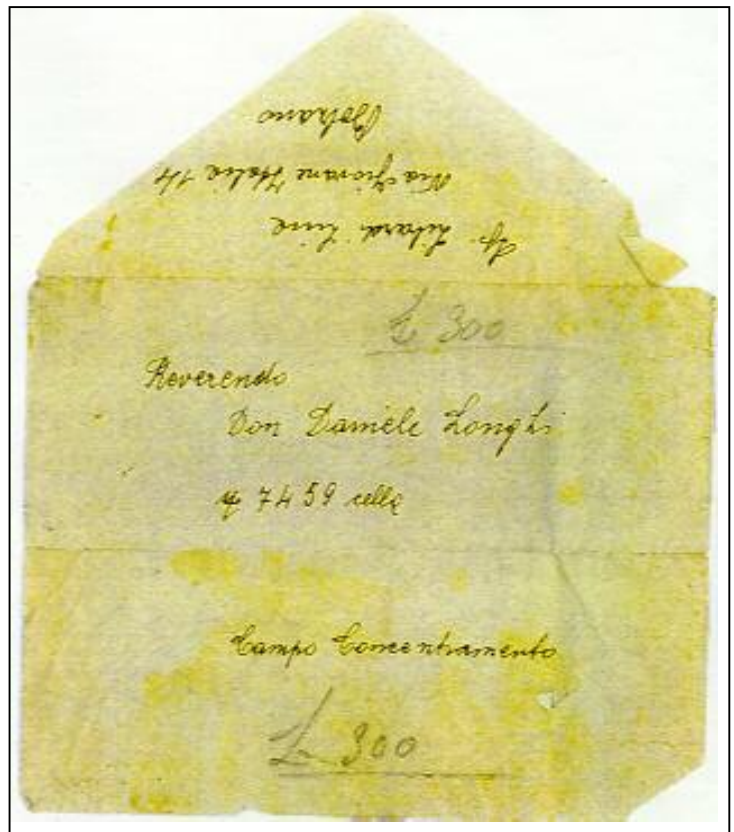 Sp. Libardi Lina
Via Giovane Italia 14
Bolzano
£ 300
Reverendo
Don Daniele Longhi
7459 cella
Campo Concentramento
£ 300